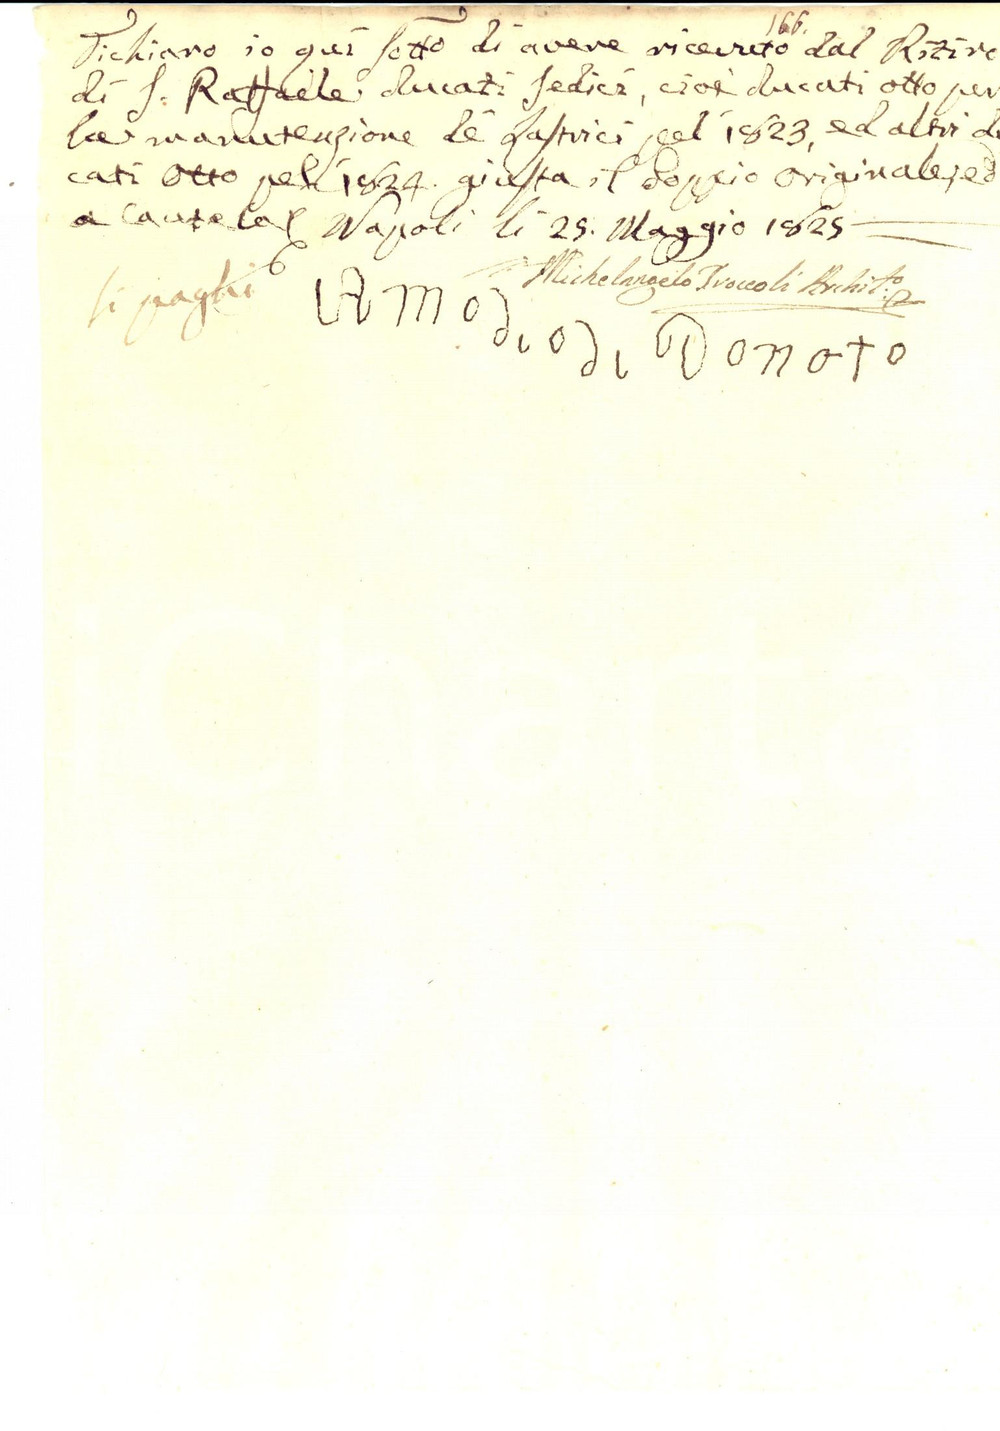 166.
Dichiaro io qui sotto di avere ricevuto dal Ritiro
di S. Raffaele ducati sedici, cioè ducati otto per
la manutenzione de lastrici pel 1823, ed altri du
cati otto pel 1824. giusta il doppio originale, ed
a cautela Napoli li 25. Maggio 1825
Michelangelo Troccoli Archit.to
si paghi
Amodio di Donato
iCharta